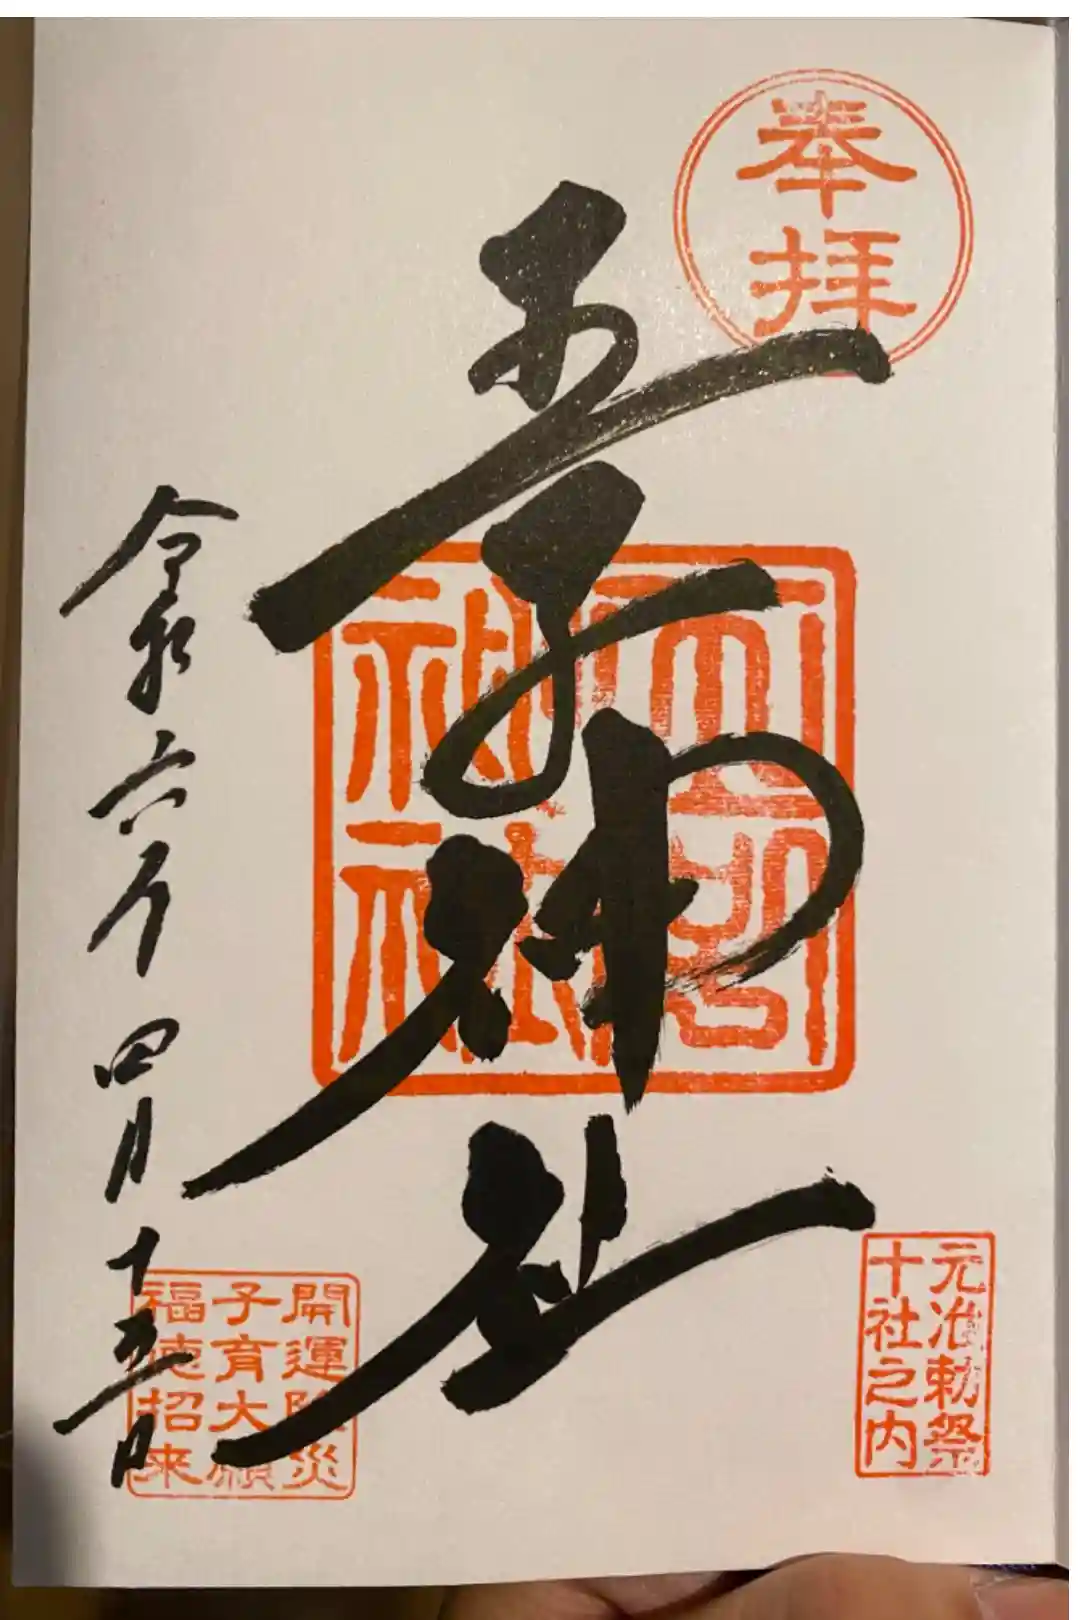 奉拝
神社
元治勅祭
十社之内
神社
令和六年四月十五日
開運除災
子育大願
福徳招来